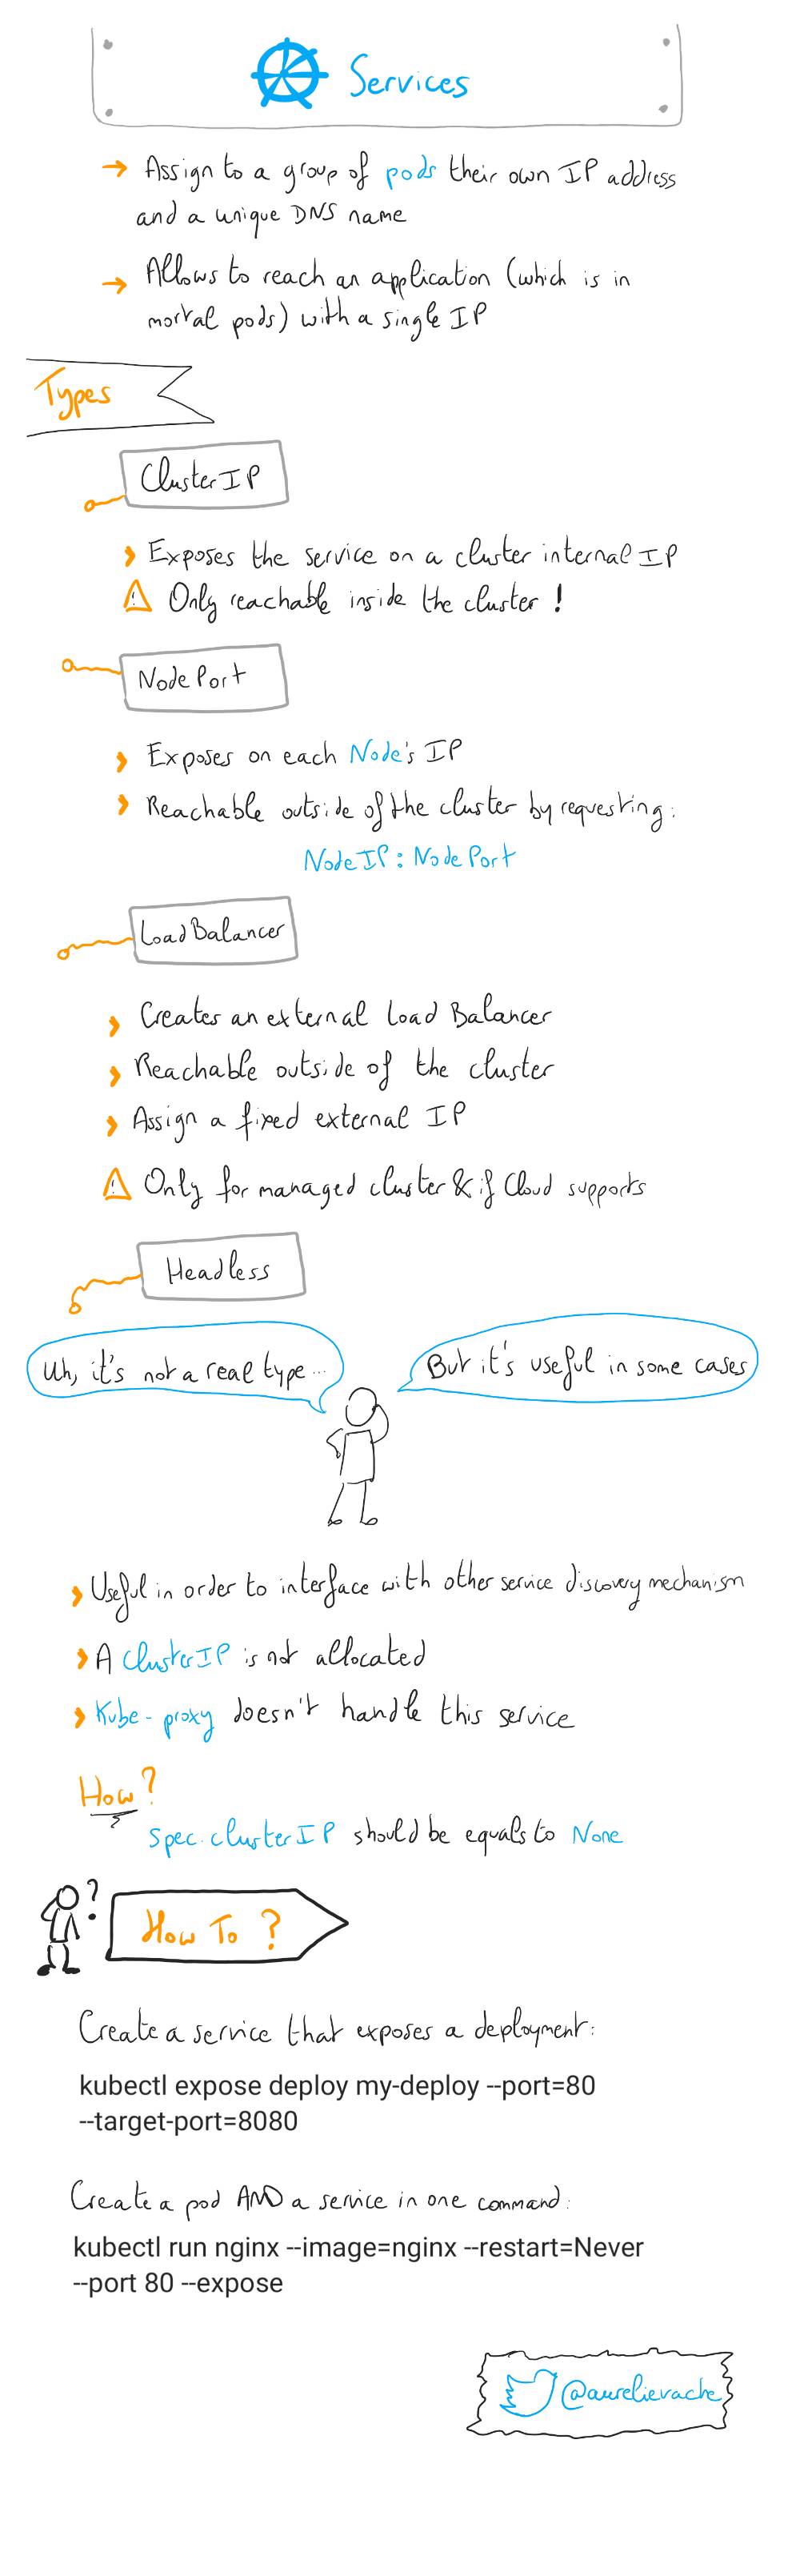 Services
→ Assign to a group of pods their own IP address
and a unique DNS name
→ Allows to reach an application (which is in
mortal pods) with a single IP
Types
ClusterIP
Exposes the service on a cluster internal IP
⚠ Only reachable inside the cluster !
NodePort
Exposes on each Node's IP
Reachable outside of the cluster by requesting:
NodeIP : NodePort
LoadBalancer
Creates an external Load Balancer
Reachable outside of the cluster
Assign a fixed external IP
⚠ Only for managed cluster & if Cloud supports
Headless
Uh, it's not a real type...
But it's useful in some cases
Useful in order to interface with other service discovery mechanism
A ClusterIP is not allocated
Kube-proxy doesn't handle this service
How?
Spec.clusterIP should be equals to None
?
How To ?
Create a service that exposes a deployment:
kubectl expose deploy my-deploy --port=80
--target-port=8080
Create a pod AND a service in one command:
kubectl run nginx --image=nginx --restart=Never
--port 80 --expose
@aurelievache